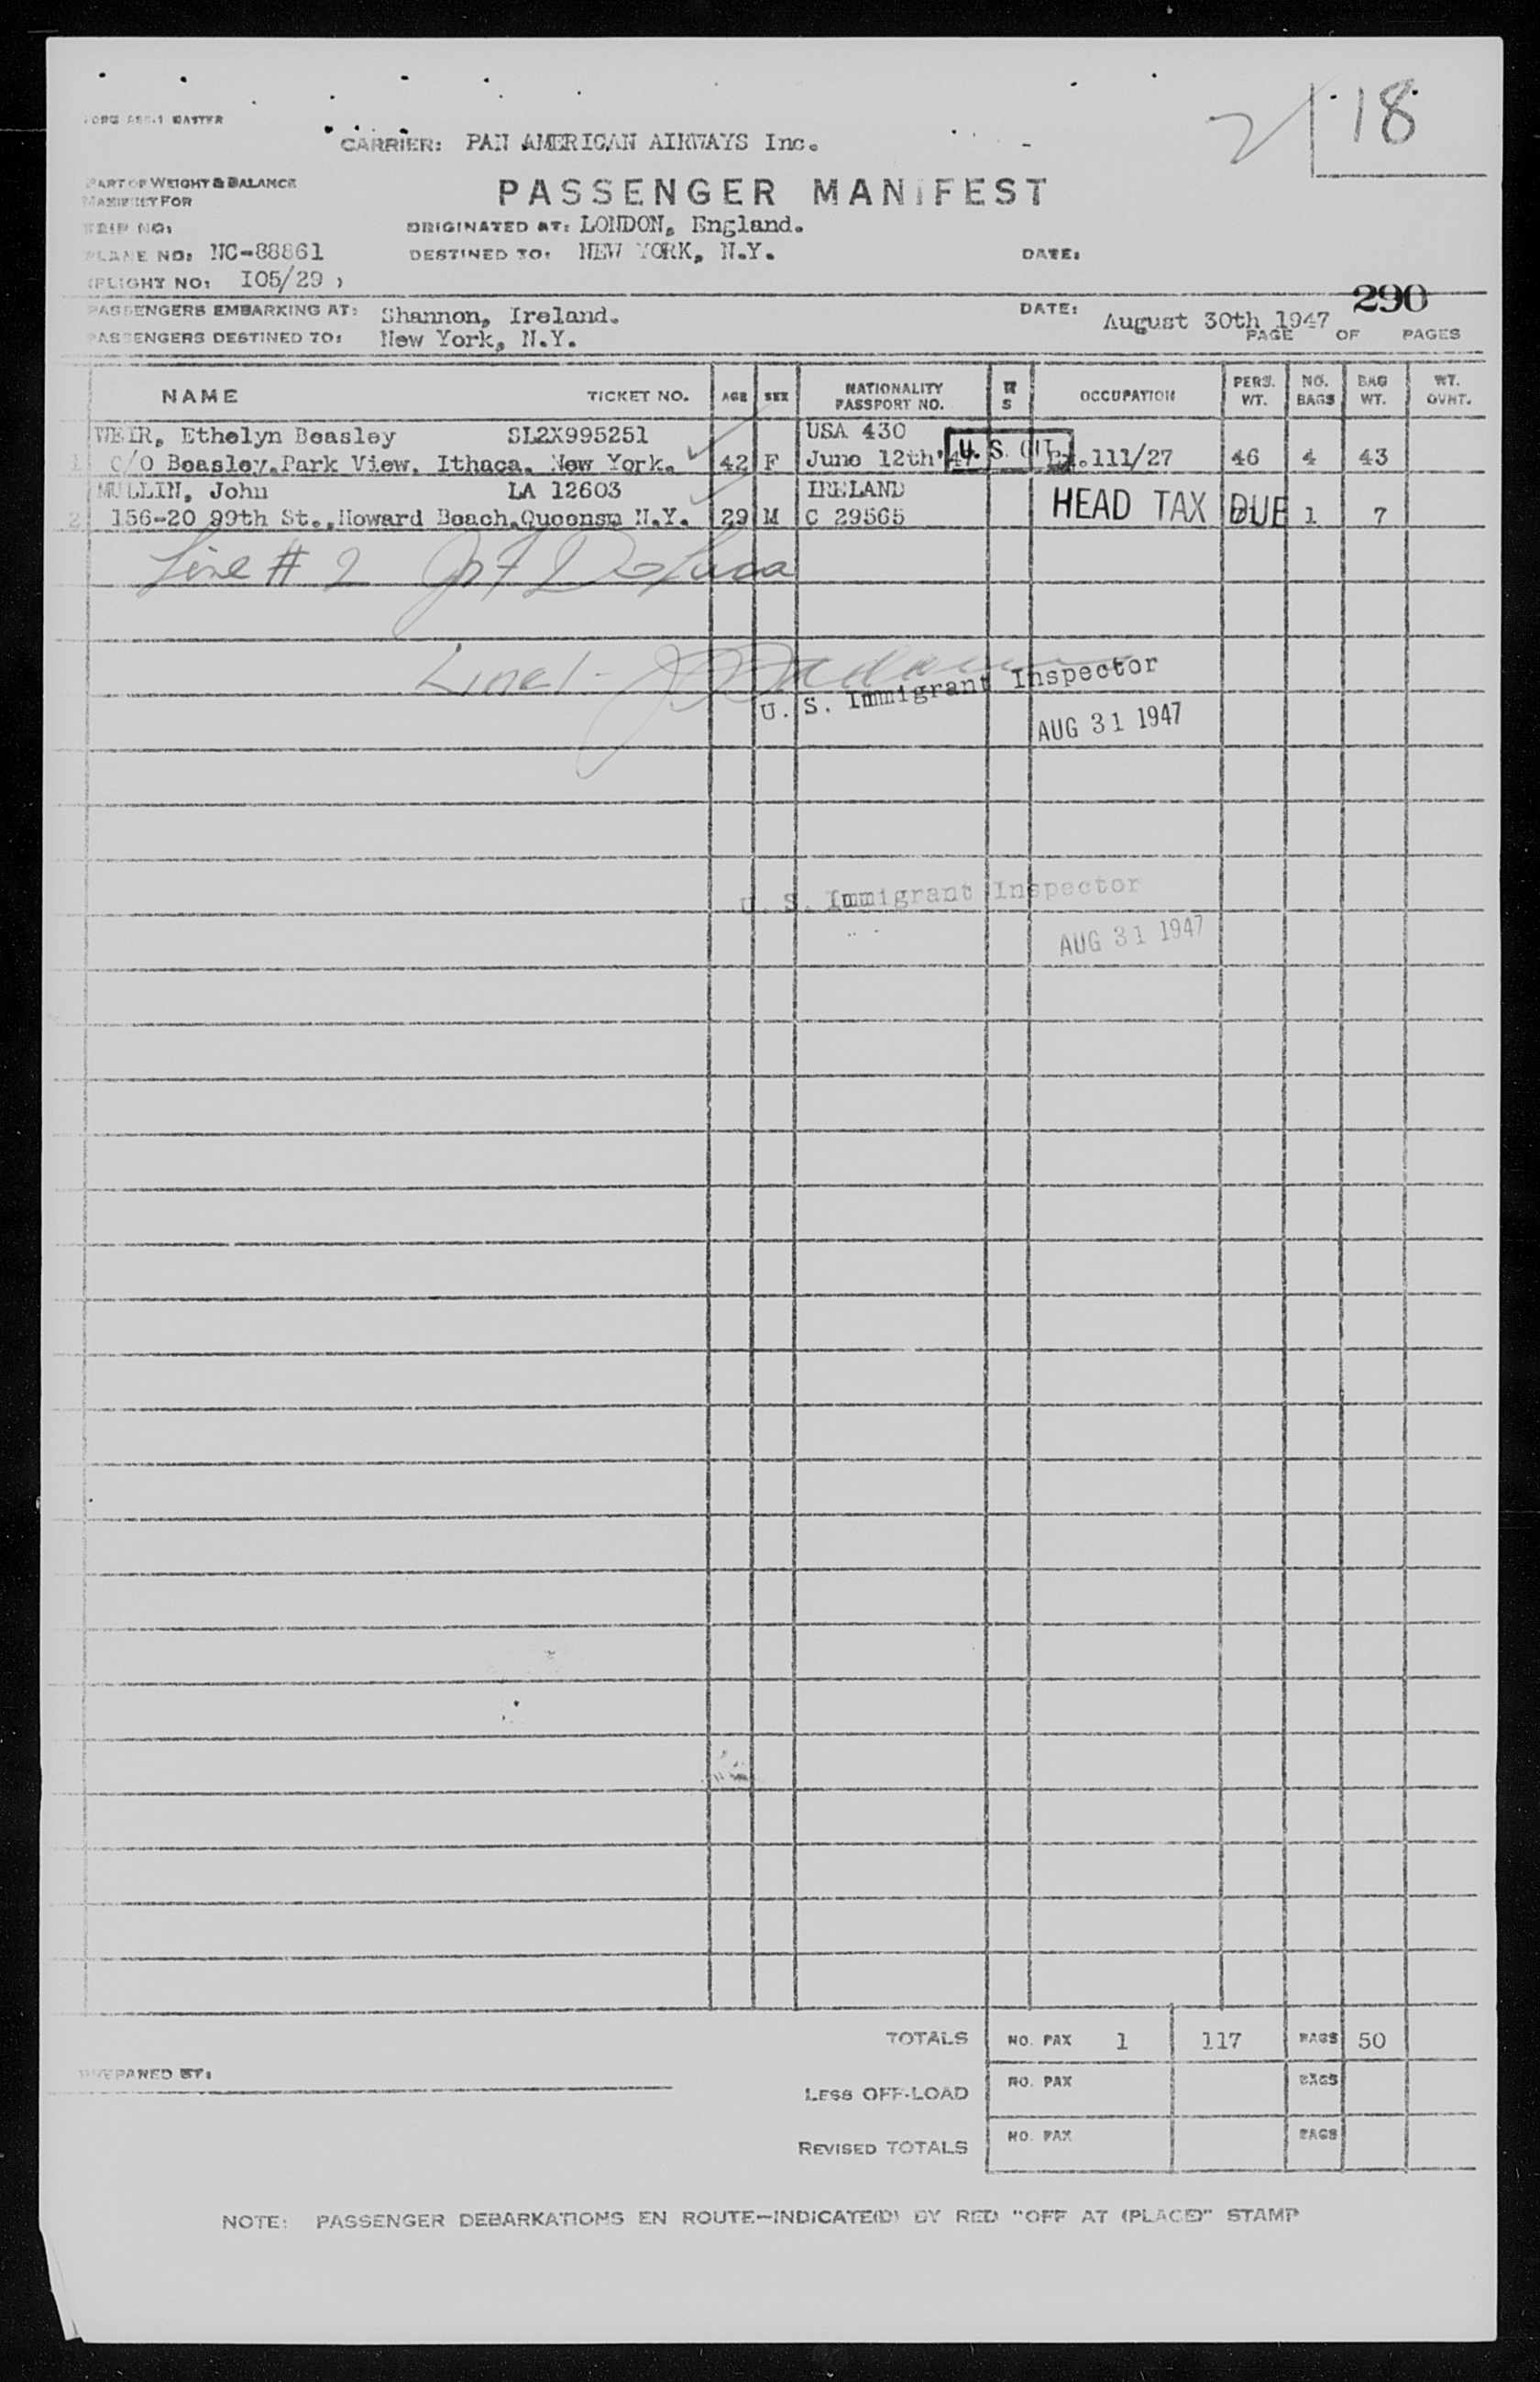 18
CARRIER: PAN AMERICAN AIRWAYS Inc.
PART OF WEIGHT & BALANCE
MANIFEST FOR
PASSENGER MANIFEST
TRIP NO:
ORIGINATED AT: LONDON, England.
PLANE NO: NC-88861
DESTINED TO: NEW YORK, N.Y.
DATE:
FLIGHT NO: I05/29
290
PASSENGERS EMBARKING AT: Shannon, Ireland.
DATE: August 30th 1947
PASSENGERS DESTINED TO: New York, N.Y.
PAGE OF PAGES
NAME TICKET NO. AGE SEX NATIONALITY PASSPORT NO. S OCCUPATION PERS. WT. NO. BAGS BAG WT. WT. OVHT.
WEIR, Ethelyn Beasley SL2X995251 USA 430
1 C/O Beasley.Park View. Ithaca. New York. 42 F June 12th'47 U.S. CIT. 111/27 46 4 43
MULLIN, John LA 12603 IRELAND
2 156-20 99th St.,Howard Beach.Queensm N.Y. 29 M C 29565 HEAD TAX DUE 1 7
Line # 2
Line 1 -
U. S. Immigrant Inspector
AUG 31 1947
U. S. Immigrant Inspector
AUG 31 1947
TOTALS NO. PAX 1 117 BAGS 50
PREPARED BY:
LESS OFF-LOAD NO. PAX BAGS
REVISED TOTALS NO. PAX BAGS
NOTE: PASSENGER DEBARKATIONS EN ROUTE—INDICATE(D) BY RED "OFF AT (PLACE)" STAMP